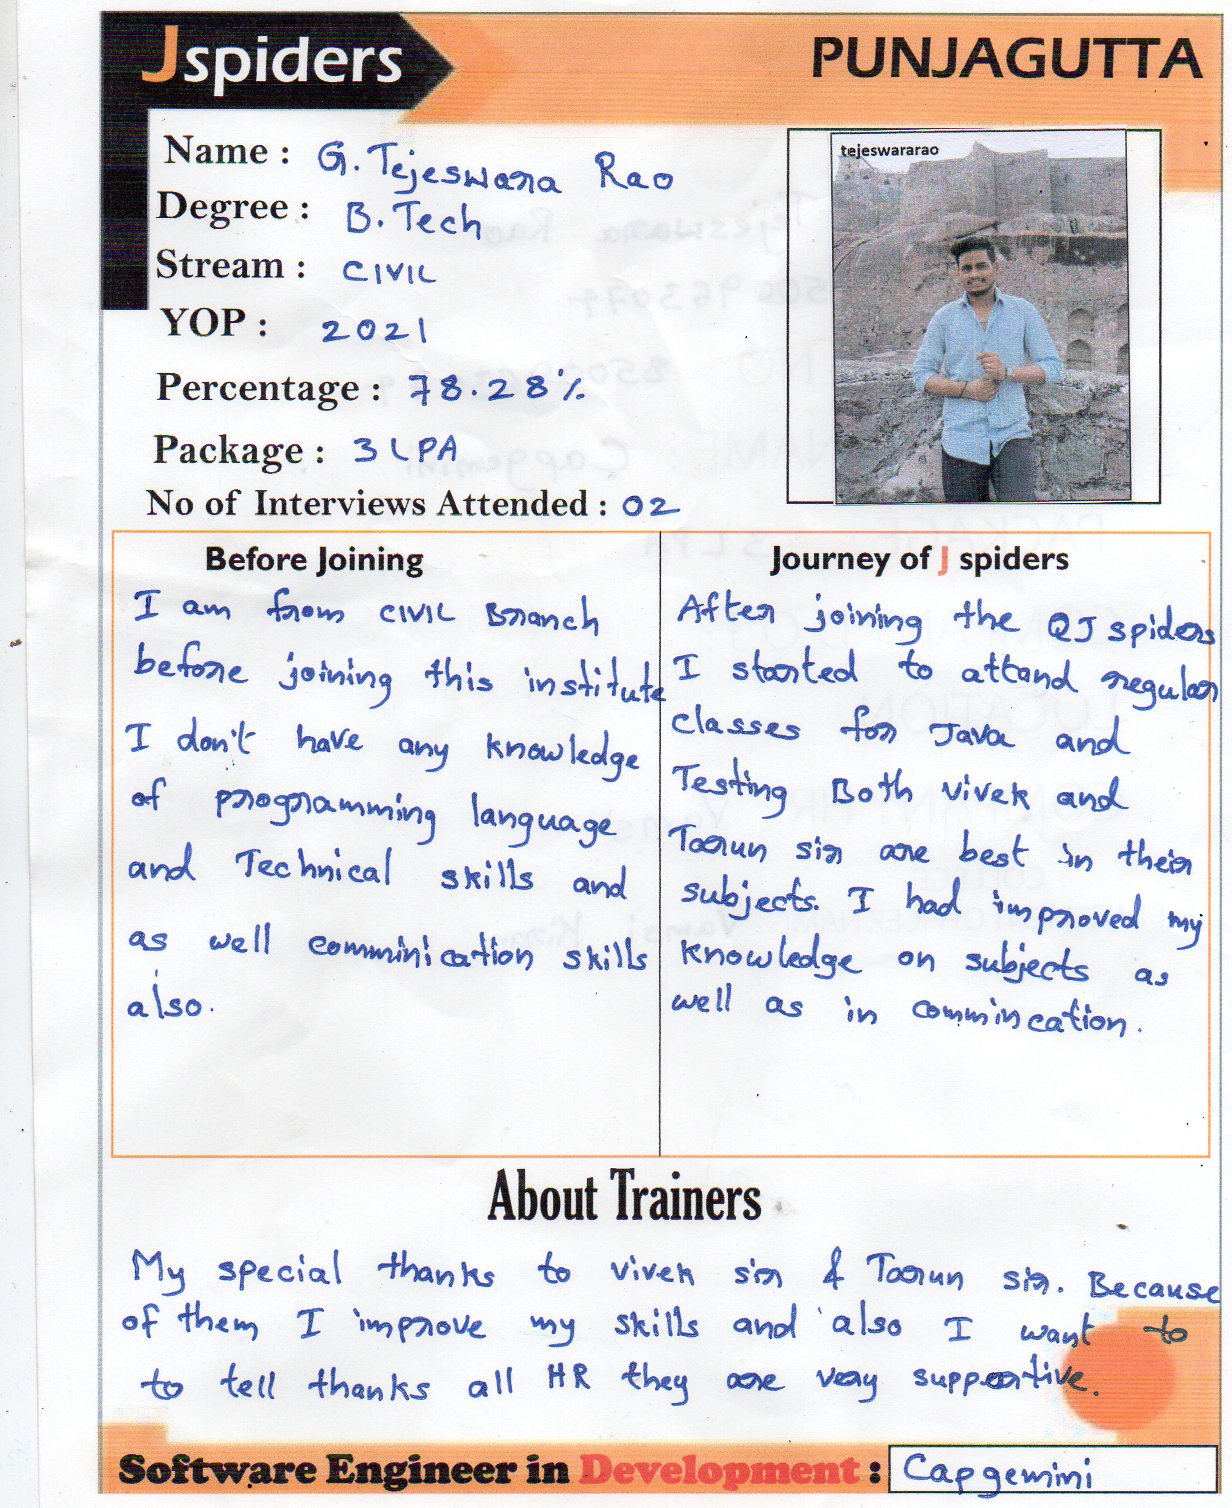 Jspiders
PUNJAGUTTA
Name : G. Tejeswara Rao
tejeswararao
Degree : B. Tech
Stream : CIVIL
YOP : 2021
Percentage : 78.28%
Package : 3 LPA
No of Interviews Attended : 02
Before Joining
I am from CIVIL Branch
before joining this institute
I don't have any knowledge
of programming language
and Technical skills and
as well comminication skills
also.
Journey of J spiders
After joining the QJ spiders
I started to attand regular
classes for Java and
Testing Both vivek and
Tarun sir are best in their
subjects. I had improved my
knowledge on subjects as
well as in commincation.
About Trainers
My special thanks to vivek sir & Tarun sir. Because
of them I improve my skills and also I want to
to tell thanks all HR they are very supportive.
Software Engineer in Development : Capgemini